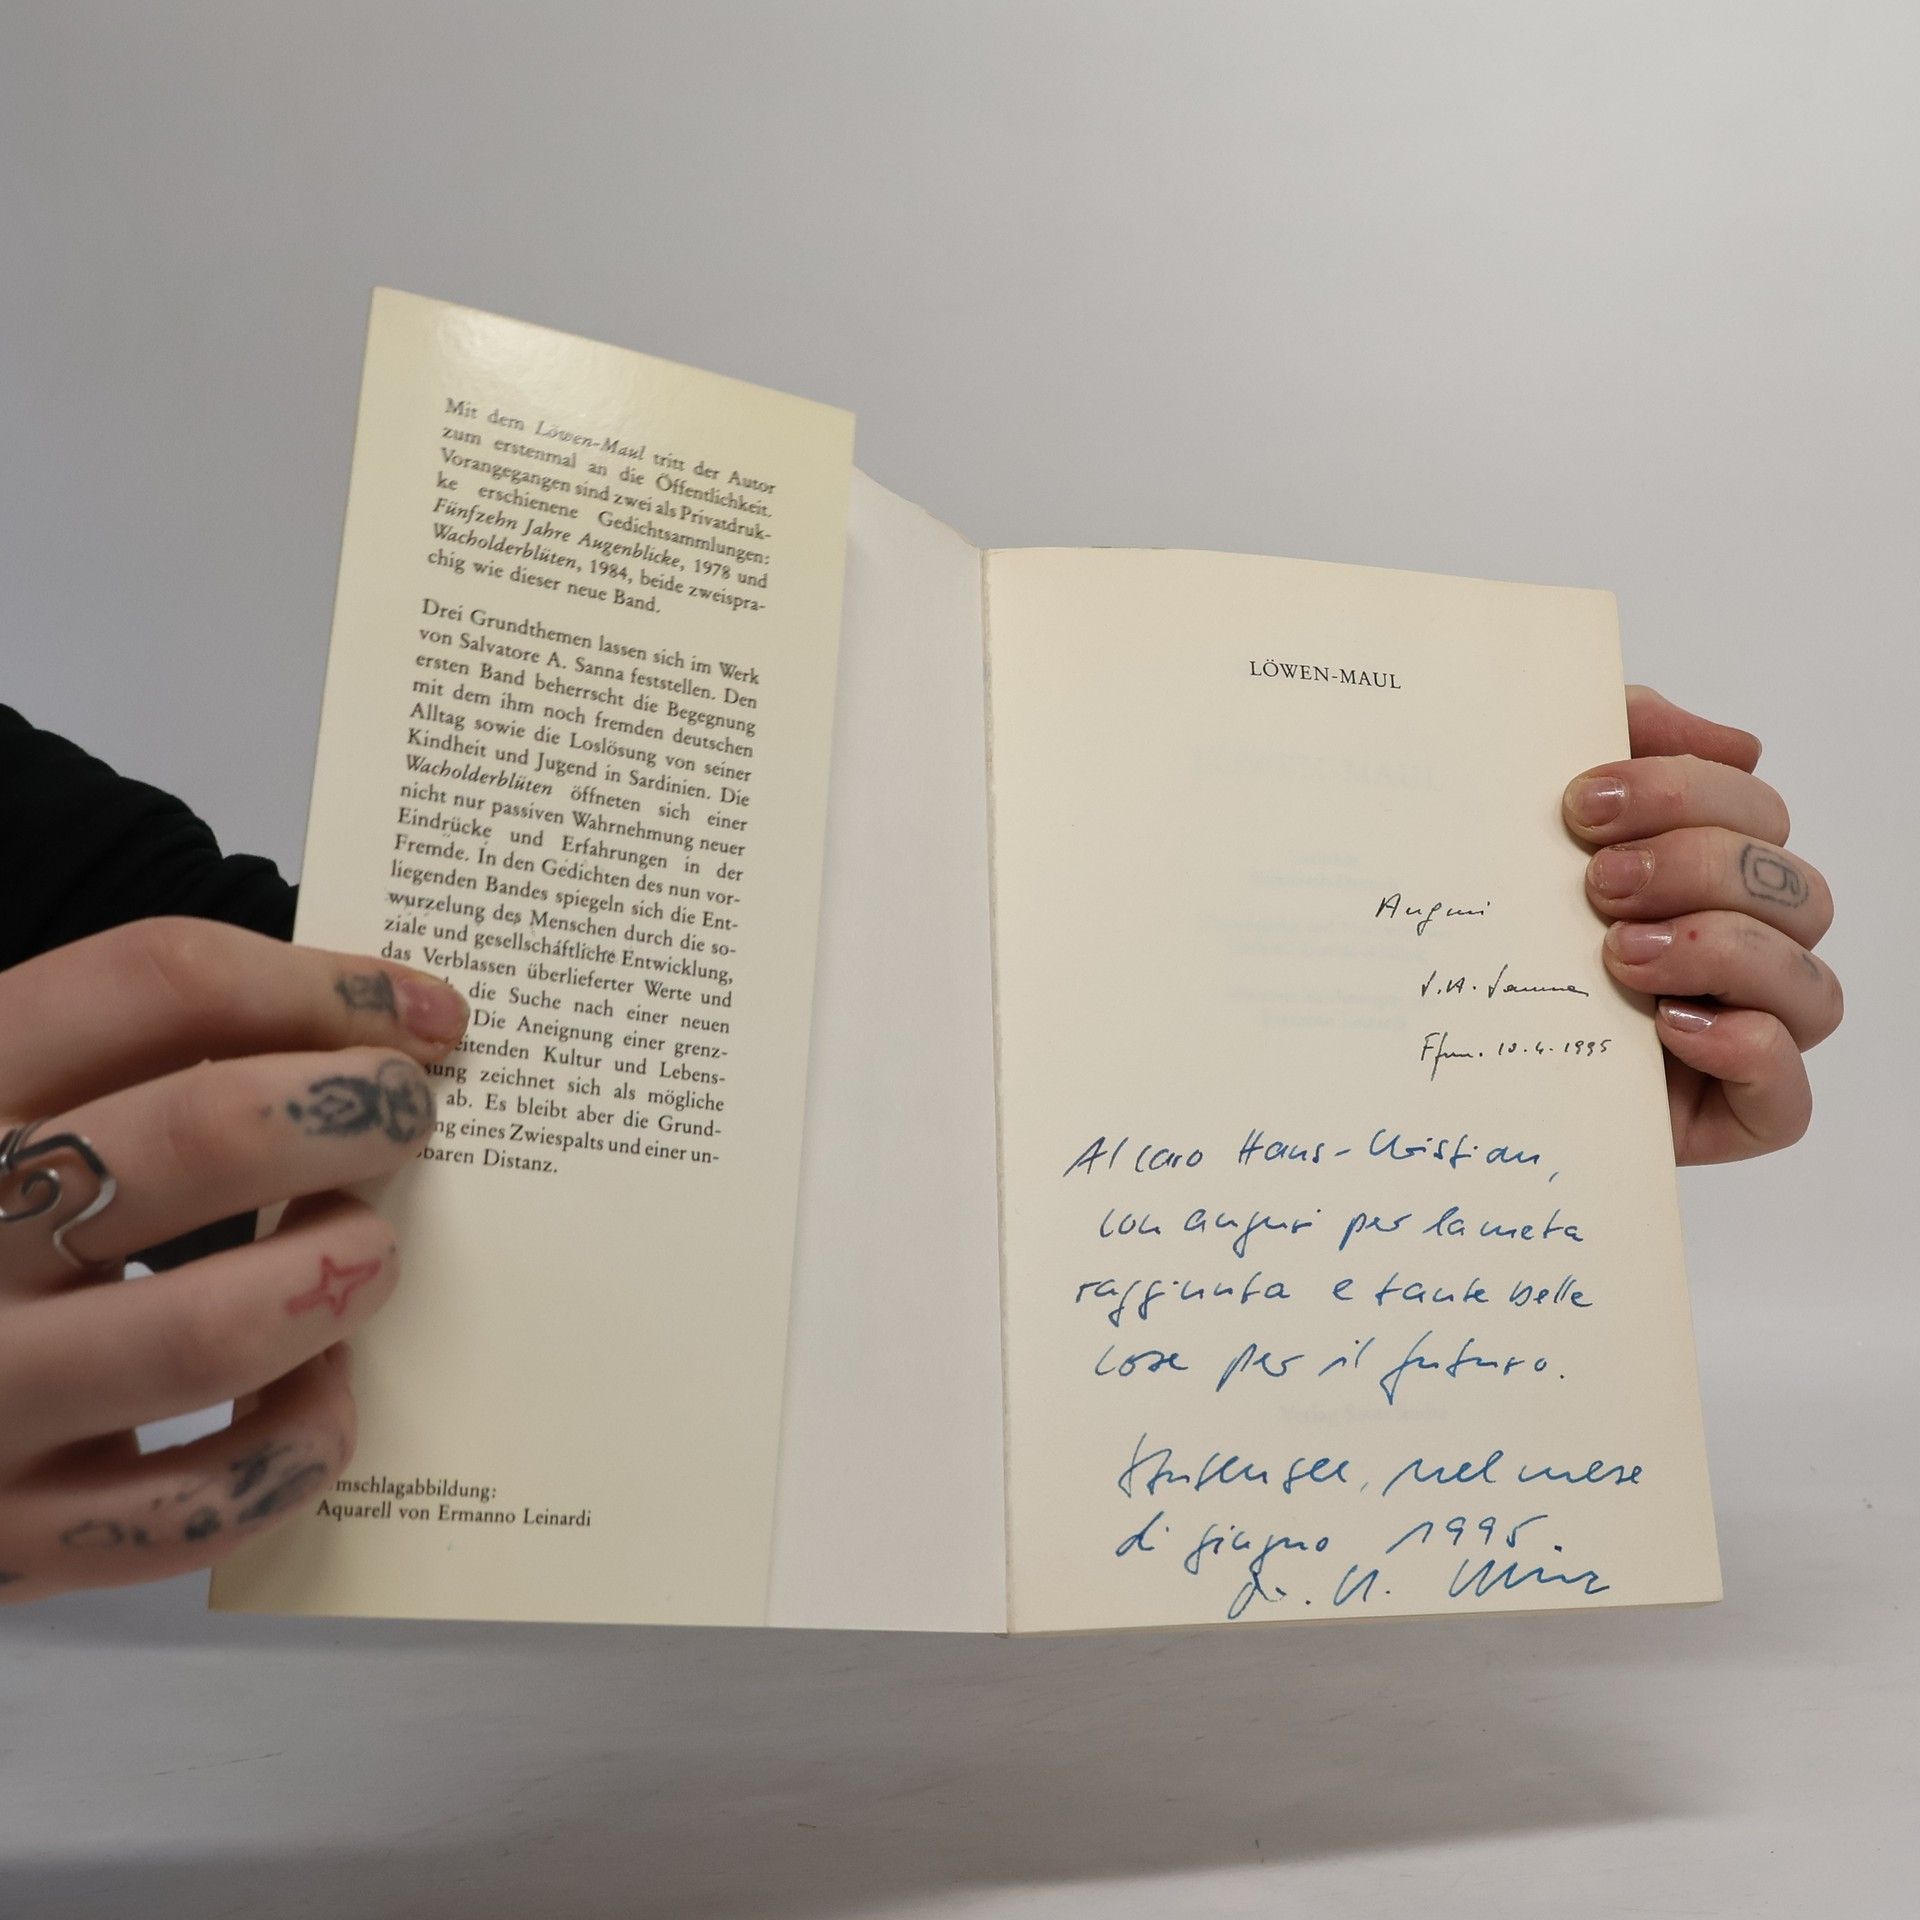 Mit dem Löwen-Maul tritt der Autor
zum erstenmal an die Öffentlichkeit.
Vorangegangen sind zwei als Privatdruk-
ke erschienene Gedichtsammlungen:
Fünfzehn Jahre Augenblicke, 1978 und
Wacholderblüten, 1984, beide zweispra-
chig wie dieser neue Band.
Drei Grundthemen lassen sich im Werk
von Salvatore A. Sanna feststellen. Den
ersten Band beherrscht die Begegnung
mit dem ihm noch fremden deutschen
Alltag sowie die Loslösung von seiner
Kindheit und Jugend in Sardinien. Die
Wacholderblüten öffneten sich einer
nicht nur passiven Wahrnehmung neuer
Eindrücke und Erfahrungen in der
Fremde. In den Gedichten des nun vor-
liegenden Bandes spiegeln sich die Ent-
wurzelung des Menschen durch die so-
ziale und gesellschäftliche Entwicklung,
das Verblassen überlieferter Werte und
die Suche nach einer neuen
Die Aneignung einer grenz-
eitenden Kultur und Lebens-
sung zeichnet sich als mögliche
ab. Es bleibt aber die Grund-
ng eines Zwiespalts und einer un-
baren Distanz.
mschlagabbildung:
Aquarell von Ermanno Leinardi
LÖWEN-MAUL
Auguri
S.A. Sanna
Ffm. 10.4.1995
Al caro Hans-Christian,
con auguri per la meta
raggiunta e tante belle
cose per il futuro.
nel mese
di giugno 1995.